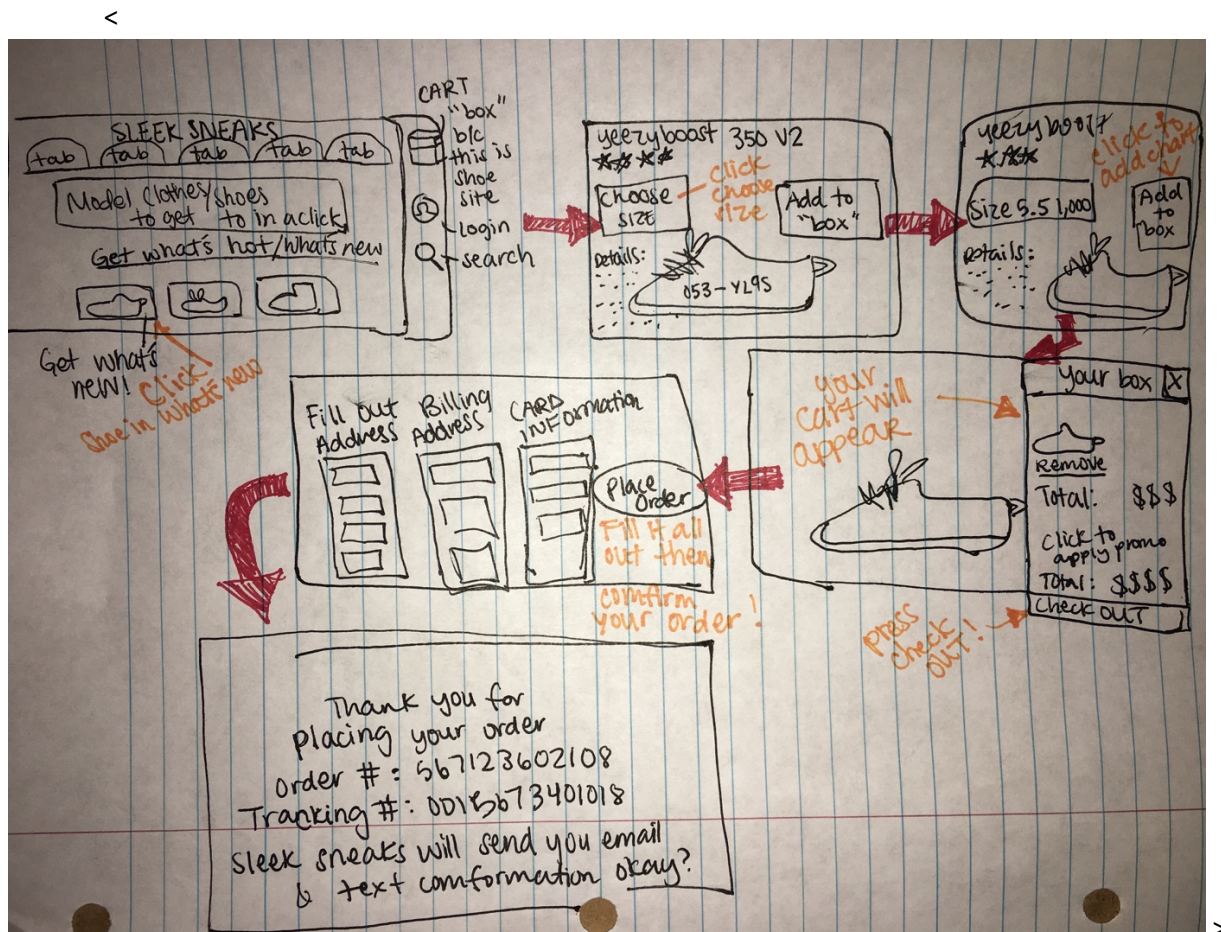 <
SLEEK SNEAKS
tab tab tab tab tab
Model Clothes/shoes
to get to in a click
Get what's hot/what's new
Get what's
new!
Click!
Shoe in what's new
CART
"box"
b/c
this is
shoe
site
login
search
yeezyboost 350 V2
Choose
SIZE
click
choose
size
Add to
"box"
Details:
053-YL9S
yeezyboost
click to
add chart
Size 5.5 1,000
Add
to
box
Details:
your
cart will
appear
your box X
Remove
Total: $$$
Click to
apply promo
Total: $$$$
Check OUT
press
check
OUT!
Fill Out
Address
Billing
Address
CARD
INFormation
Place
Order
Fill it all
out then
comfirm
your order!
Thank you for
placing your order
order #: 567123602108
Tranking #: 001B5673401018
sleek sneaks will send you email
& text comformation okay?
>